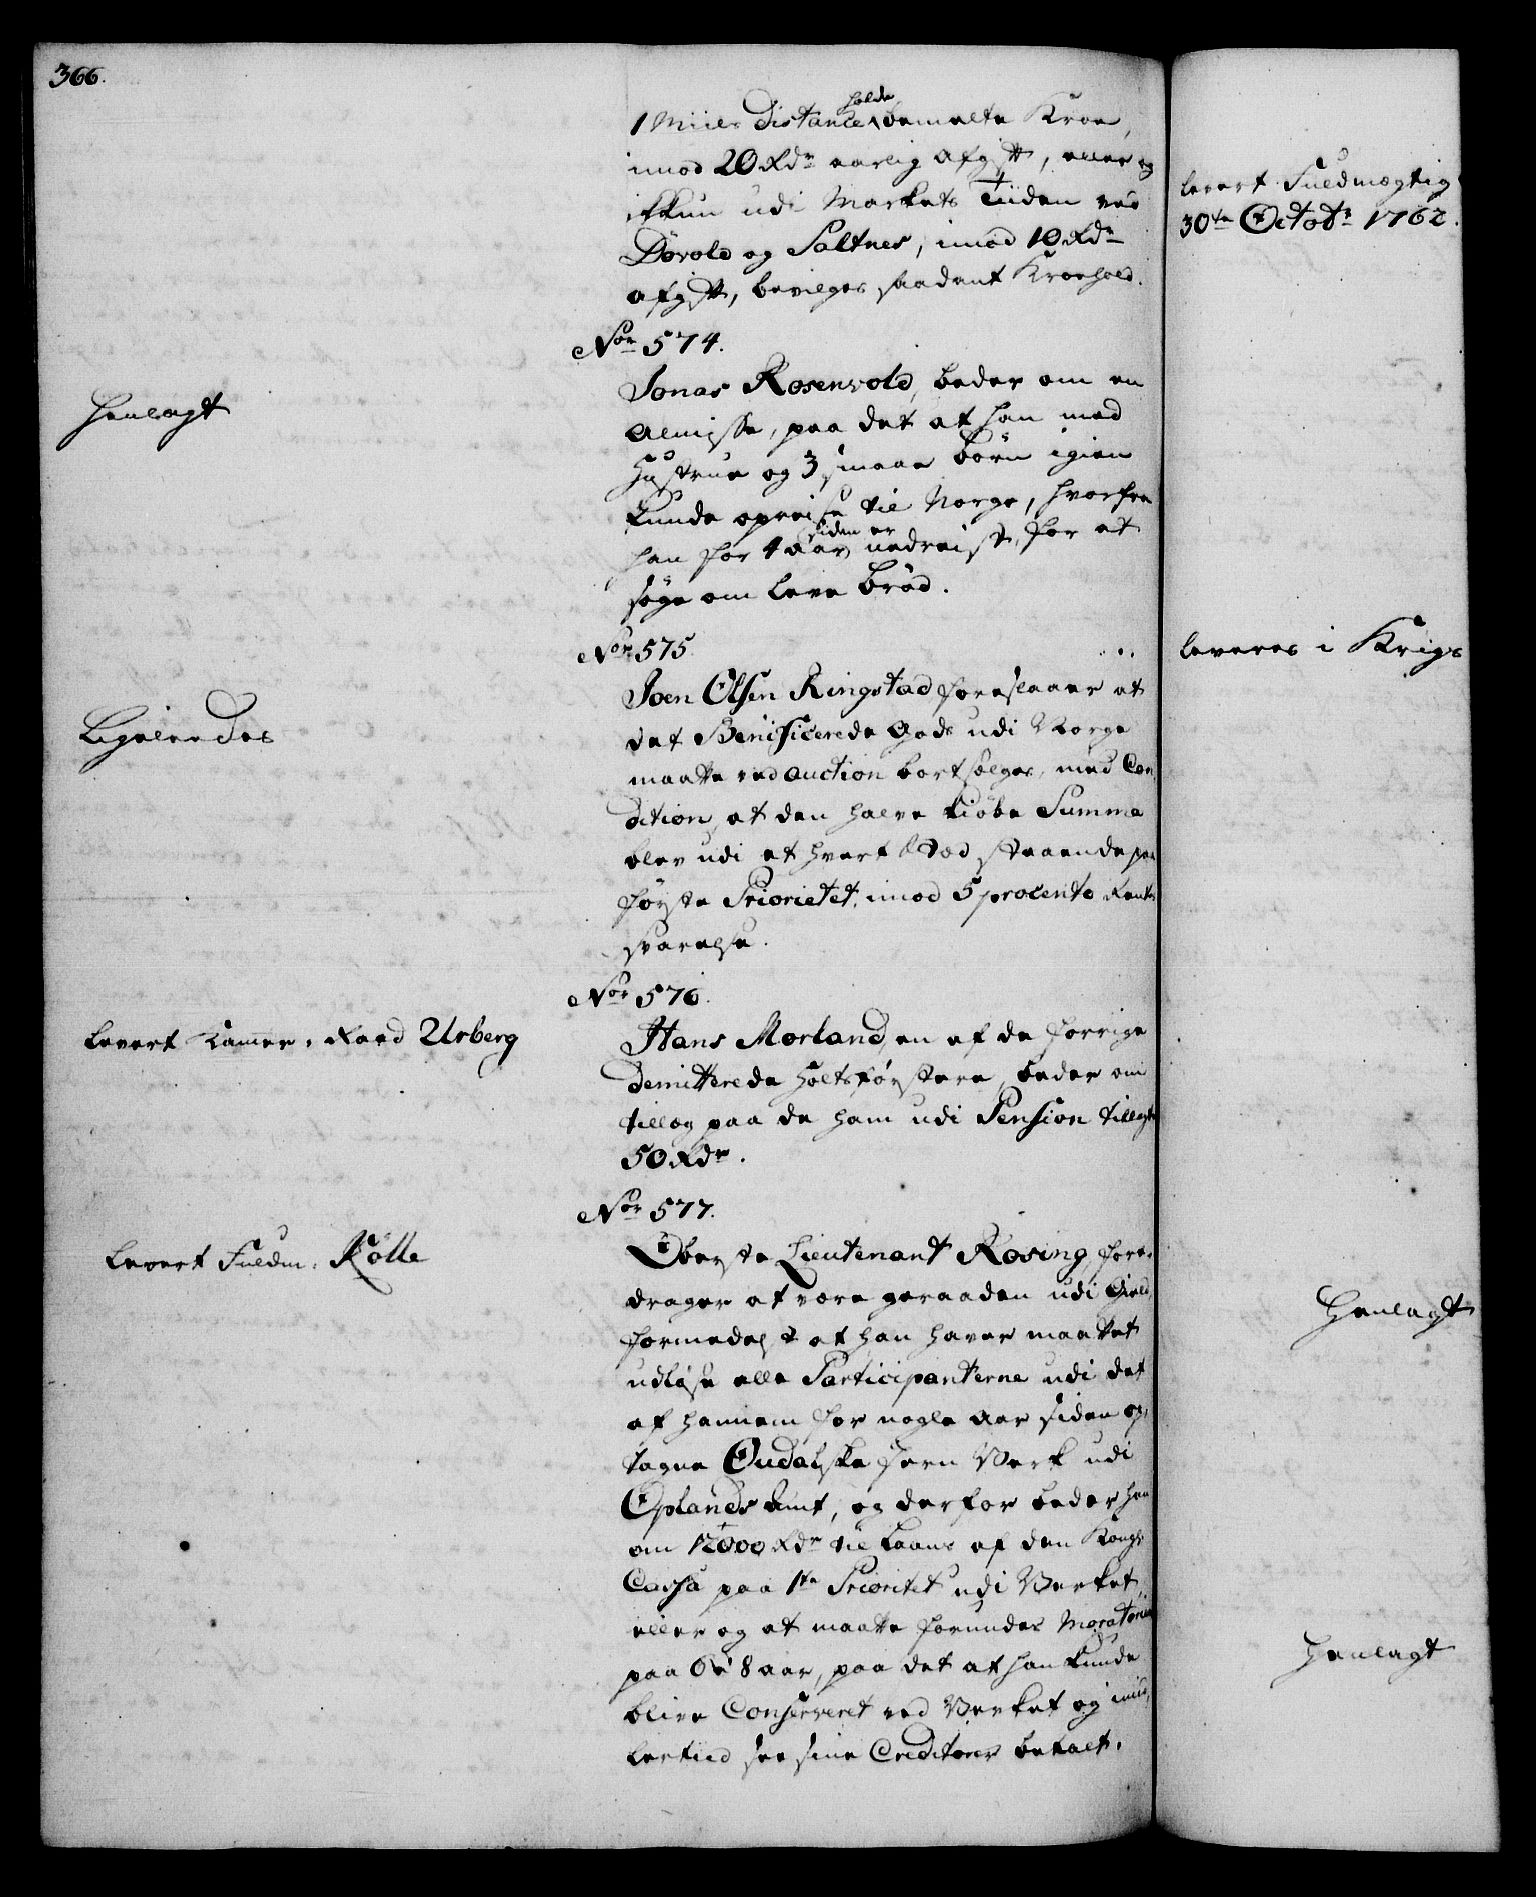 366.
1 Miils Distance holde bemelte Kroe,
imod 20 Rdr aarlig afgift, eller og
ikkun udi Markets Tiiden ved
Dørold og Saltnes, imod 10 Rdr
afgift, bevilges saadant Kroehold.
Nor 574.
Henlagt
Jonas Rosenvold, beder om en
Almisse, paa det at han med
Hustrue og 3 smaae Børn igien
kunde opreise til Norge, hvorfra
han for 4 aar siden er nedreist, for at
søge om leve brød.
Nor 575.
Ligeleedes
Joen Olsen Ringstad foreslaaer at
det Beneficerede Gods udi Norge
maatte ved auction bortsælges, med Con,
dition, at den halve kiøbe Summa
blev udi et hvert Stæd staaende paa
første Prioritet, imod 5 procento Rentes
svarelse.
Nor 576.
Levert Kammer-Raad Urberg
Hans Morland, en af de forrige
Demitterede Holtsførstere, beder om
tillæg paa de ham udi Pension tillagte
50 Rdr.
Nor 577.
Levert Fuldm: Rølle
Oberste Lieutenant Rosing, fore,
drager at være geraaden udi Gield,
formedelst at han haver maattet
udløse alle Participanterne udi det
af hannem for nogle Aar siden op,
tagne Oudalske Jern Verk udi
Oplands Amt, og derfor beder han
om 12000 Rdr til Laans af den Kongl.
Cassa paa 1te Prioritet udi Verket,
eller og at maatte forundes Moratorium
paa 6 à 8 aar, paa det at han kunde
blive Conserveret ved Verket og imid,
lertiid see sine Creditores betalt.
levert Fuldmægtig
30te Octobr 1762.
leveres i Krigs
Henlagt
Henlagt